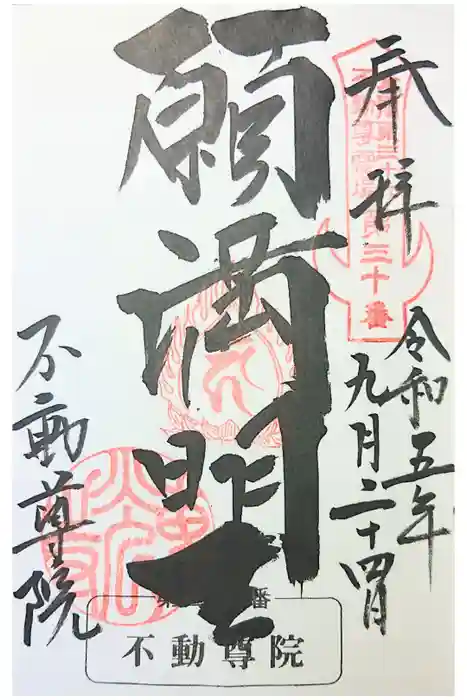 奉拝
不動尊霊場第三十番
令和五年
九月二十四日
願満明王
不動尊院
第
番
不動尊院